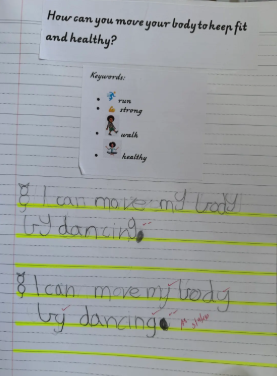 How can you move your body to keep fit
and healthy?
Keywords:
run
strong
walk
healthy
I can move my body
by dancing.
I can move my body
by dancing.